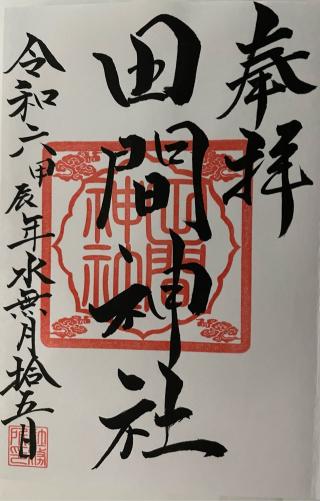 奉拝
田間神社
令和六甲辰年水無月拾五日
田間神社
社務所之印